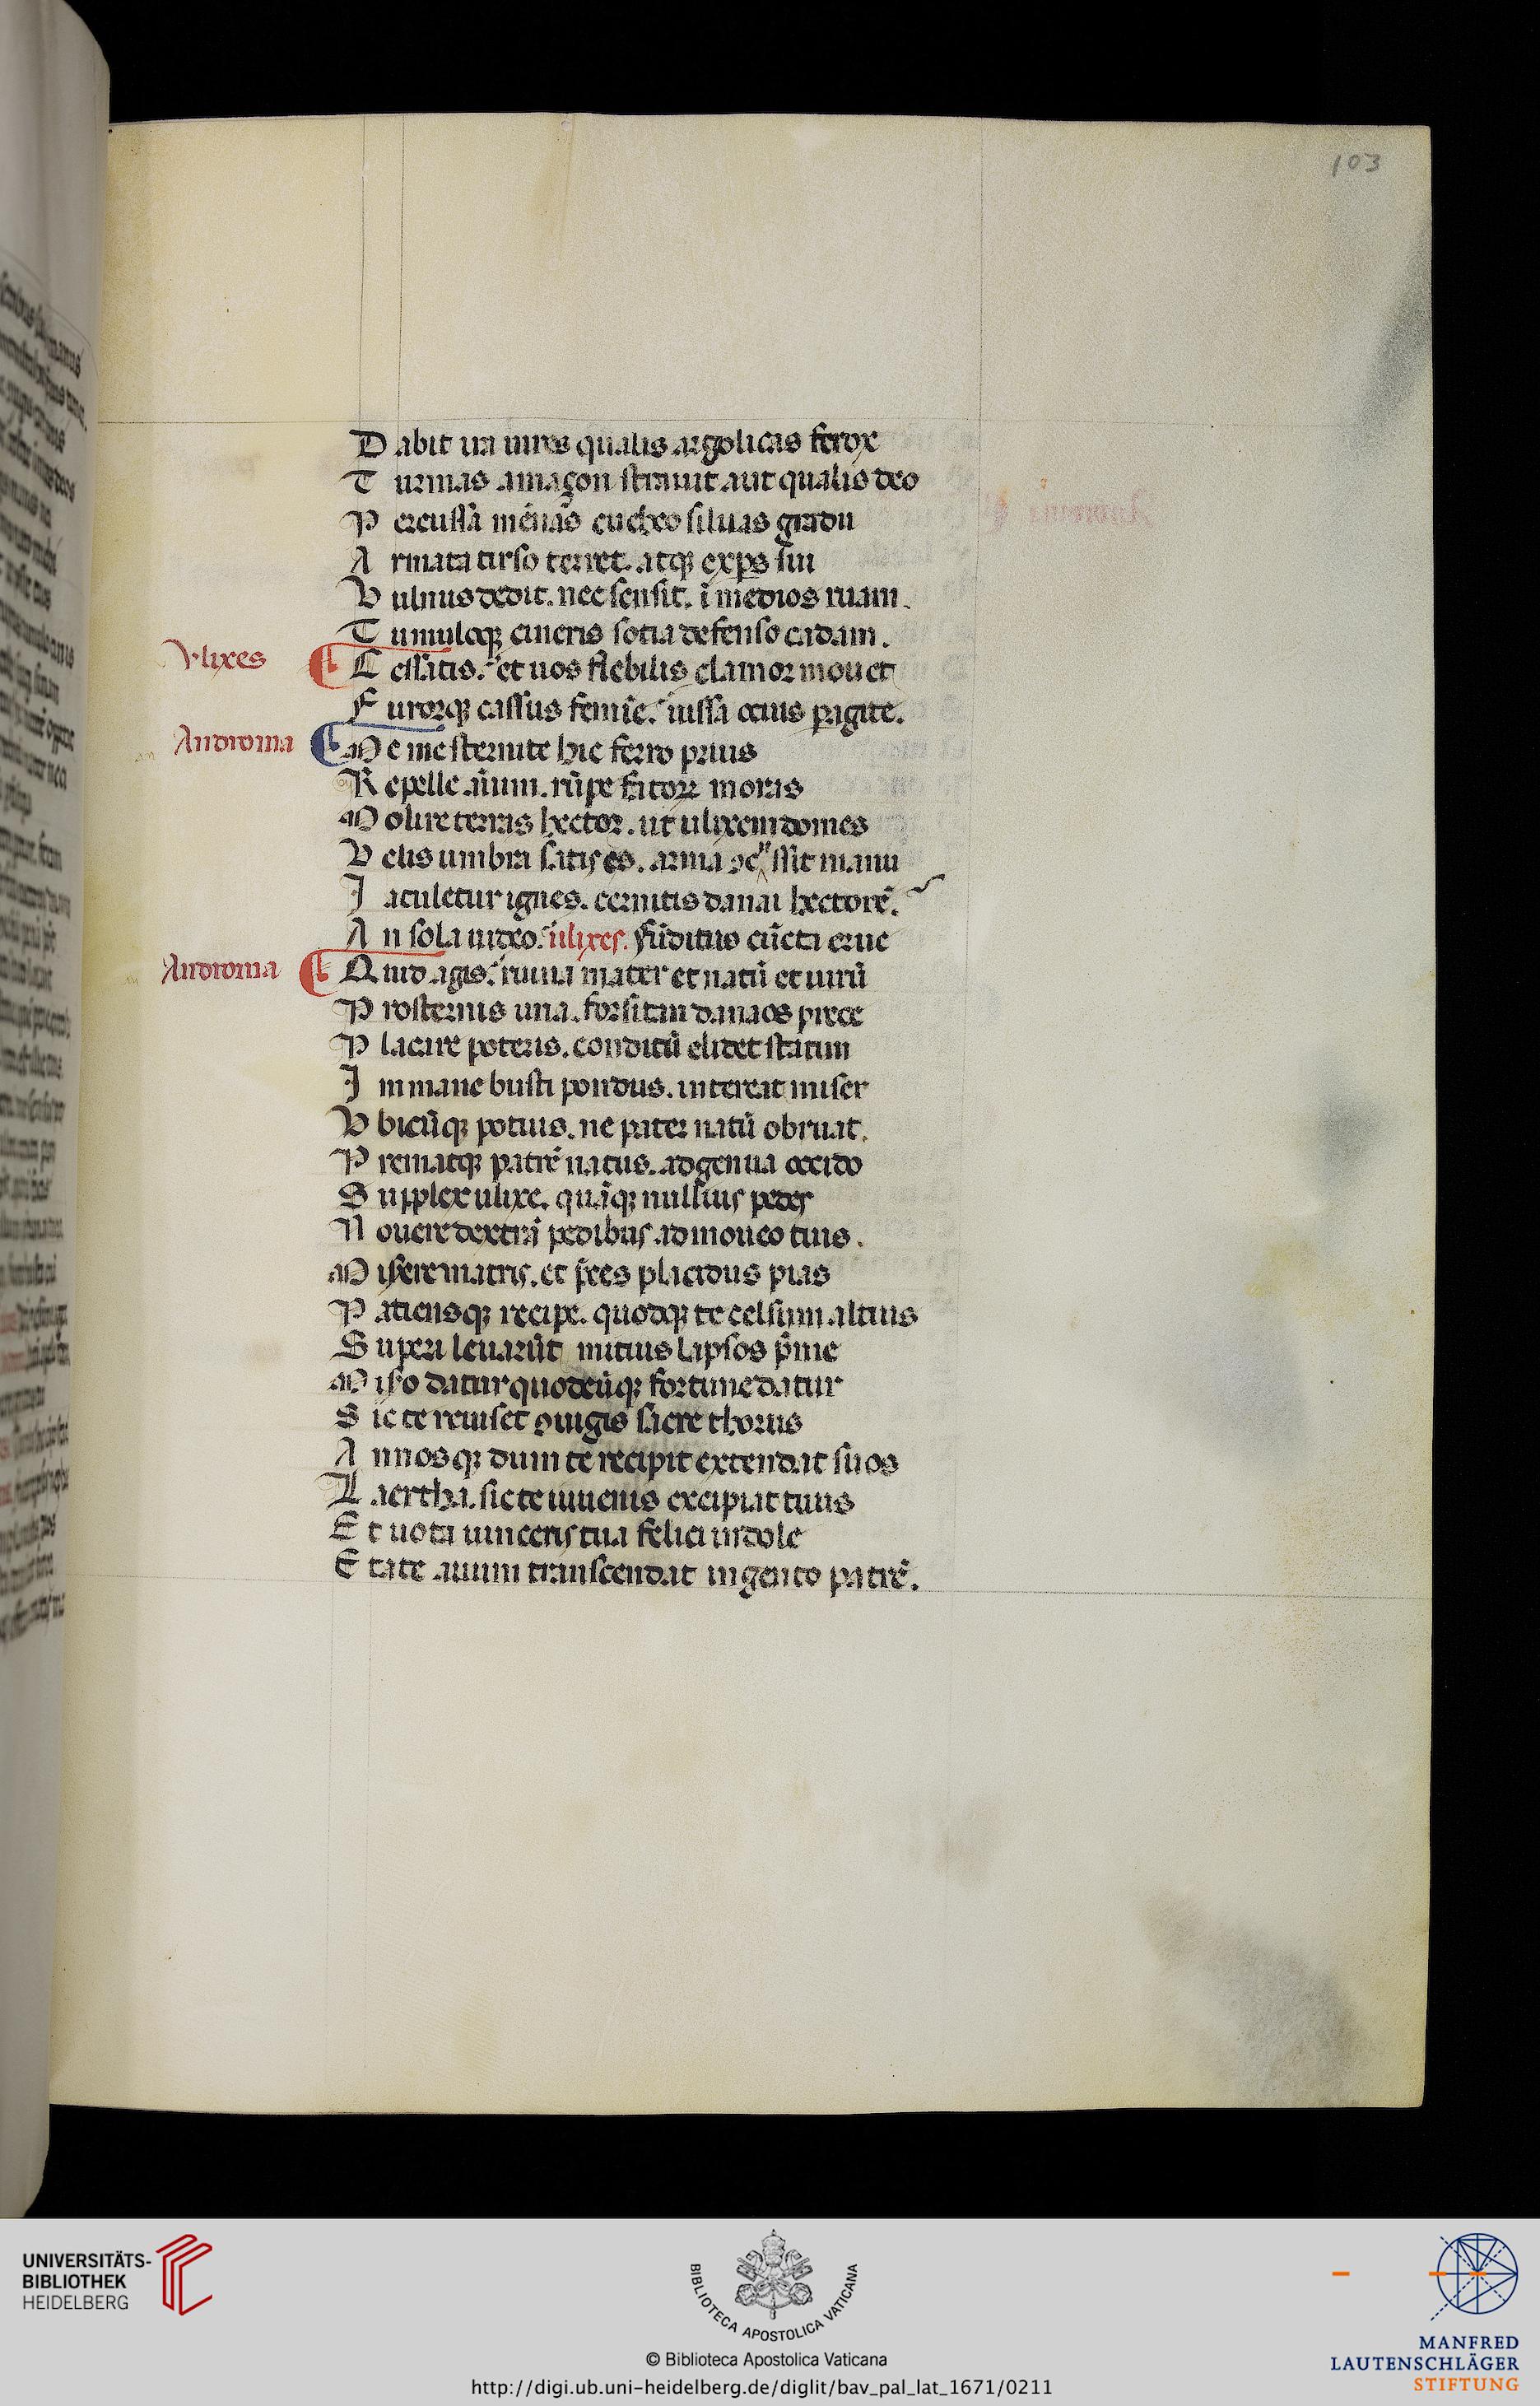 103
D abit ira uires qualis argolicas ferox
T urmas amaçon strauit aut qualis deo
P ercussa mẽnas eucheo siluas gradu
A rmata tirso terret. atq; exp̱s sui
V ulnus dedit. nec sensit. ĩ medios ruam.
T umuloq; cineris sotia defenso cadam.
Vlixes ¶ C essatis. et uos flebilis clamor mouet
F urorq; cassus femĩe. iussa ocius p̱agite.
Androma ¶ M e me sternite hic ferro prius
R epelle aĩum. rũpe fatoꝝ moras
M olire terras hector. ut ulixem domes
V elis umbra satis es. arma ↄcussit manu
I aculetur ignes. cernitis danai hectorẽ.
A n sola uideo. ulixes. Fũditus cũcta erue
Androma ¶ Q uid agis. ruina mater et natũ et uirũ
P rosternis una. forsitan danaos prece
P lacare poteris. conditũ elidet statim
I nmane busti pondus. intereat miser
V bicũq; potius. ne pater natũ obruat.
P rematq; patrẽ natus. ad genua accido
S upplex ulixe. quãq; nullius pedes
N ouere dextrã pedibus admoueo tuis.
M iserere matris. et p̃ces placidus pias
P atiensq; recipe. quoq; te celsum altius
S uperi leuarũt mitius lapsos p̃me
M iso datur quodcũq; fortune datur
S ic te reuiset ↄiugis sacre thorus
A nnosq; dum te recipit extendat suos
L aertha. sic te iuuenis excipiat tuus
E t uota uincens tua felici indole
E tate auum transcendat ingenio patrẽ.
UNIVERSITÄTS-
BIBLIOTHEK
HEIDELBERG
BIBLIOTECA APOSTOLICA VATICANA
© Biblioteca Apostolica Vaticana
http://digi.ub.uni-heidelberg.de/diglit/bav_pal_lat_1671/0211
MANFRED
LAUTENSCHLÄGER
STIFTUNG